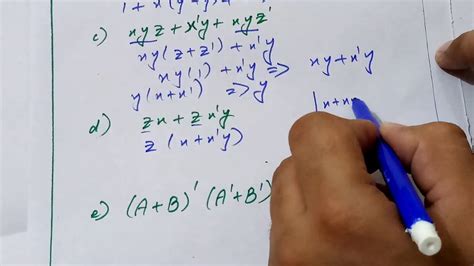 1 + x(y+y)
c) xyz + x'y + xyz'
xy(z+z') + x'y
xy(1) + x'y => xy + x'y
y(x+x') => y
d) zx + zx'y
z(x+x'y)
x+x
e) (A+B)' (A'+B')